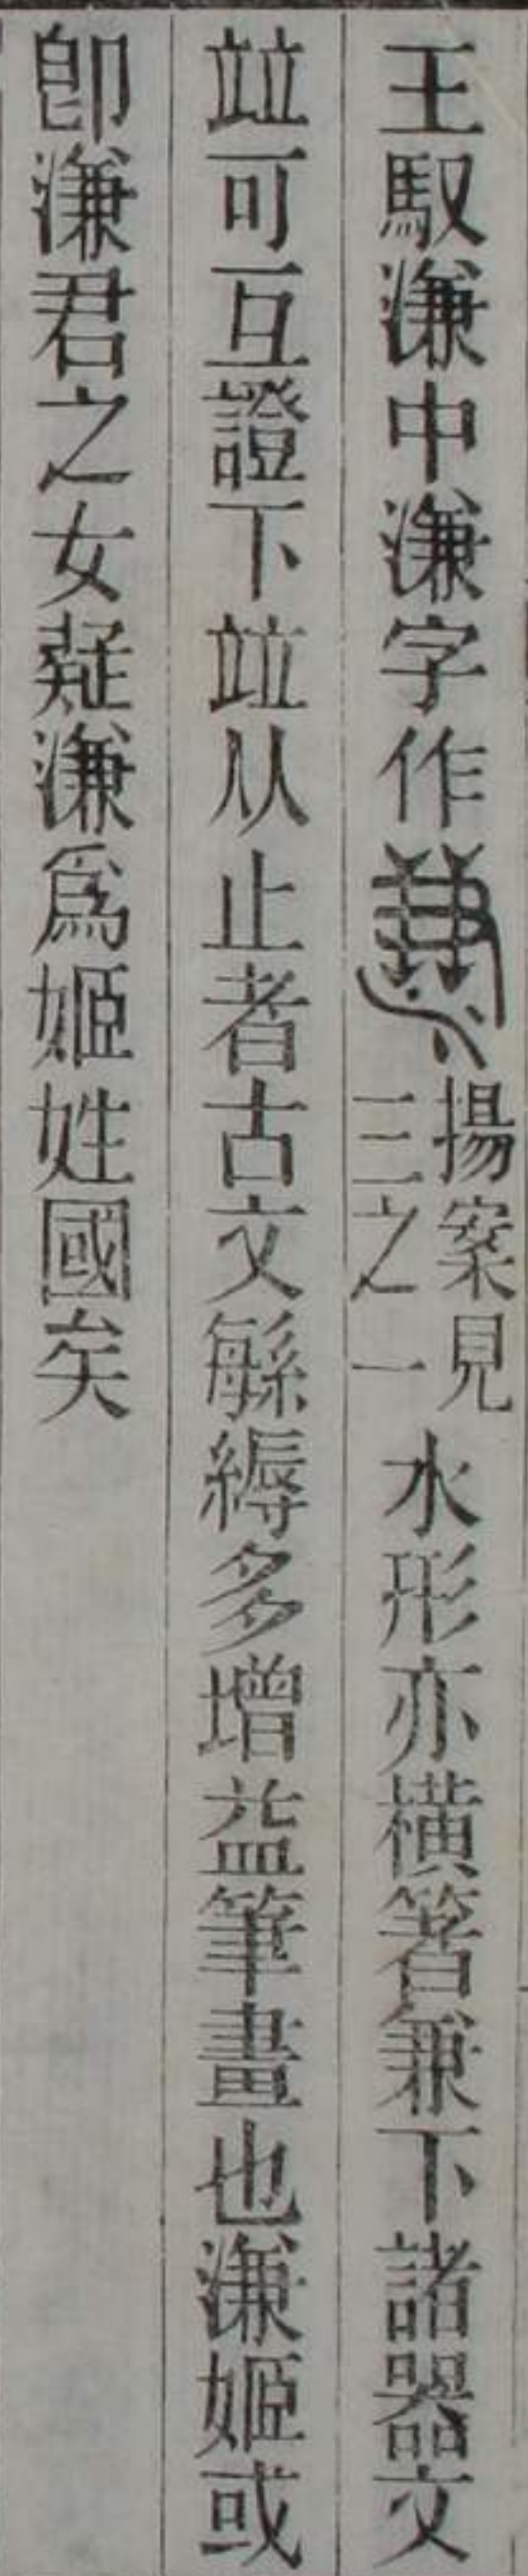 王馭溓中溓字作揚案見三之一水形亦橫箸兼下諸器文
竝可互證下竝从止者古文緐縟多增益筆畫也溓姬或
卽溓君之女疑溓爲姬姓國矣